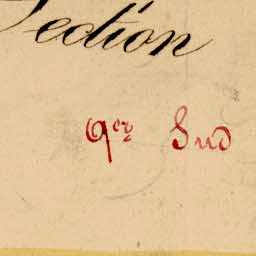 Section
Qer Sud